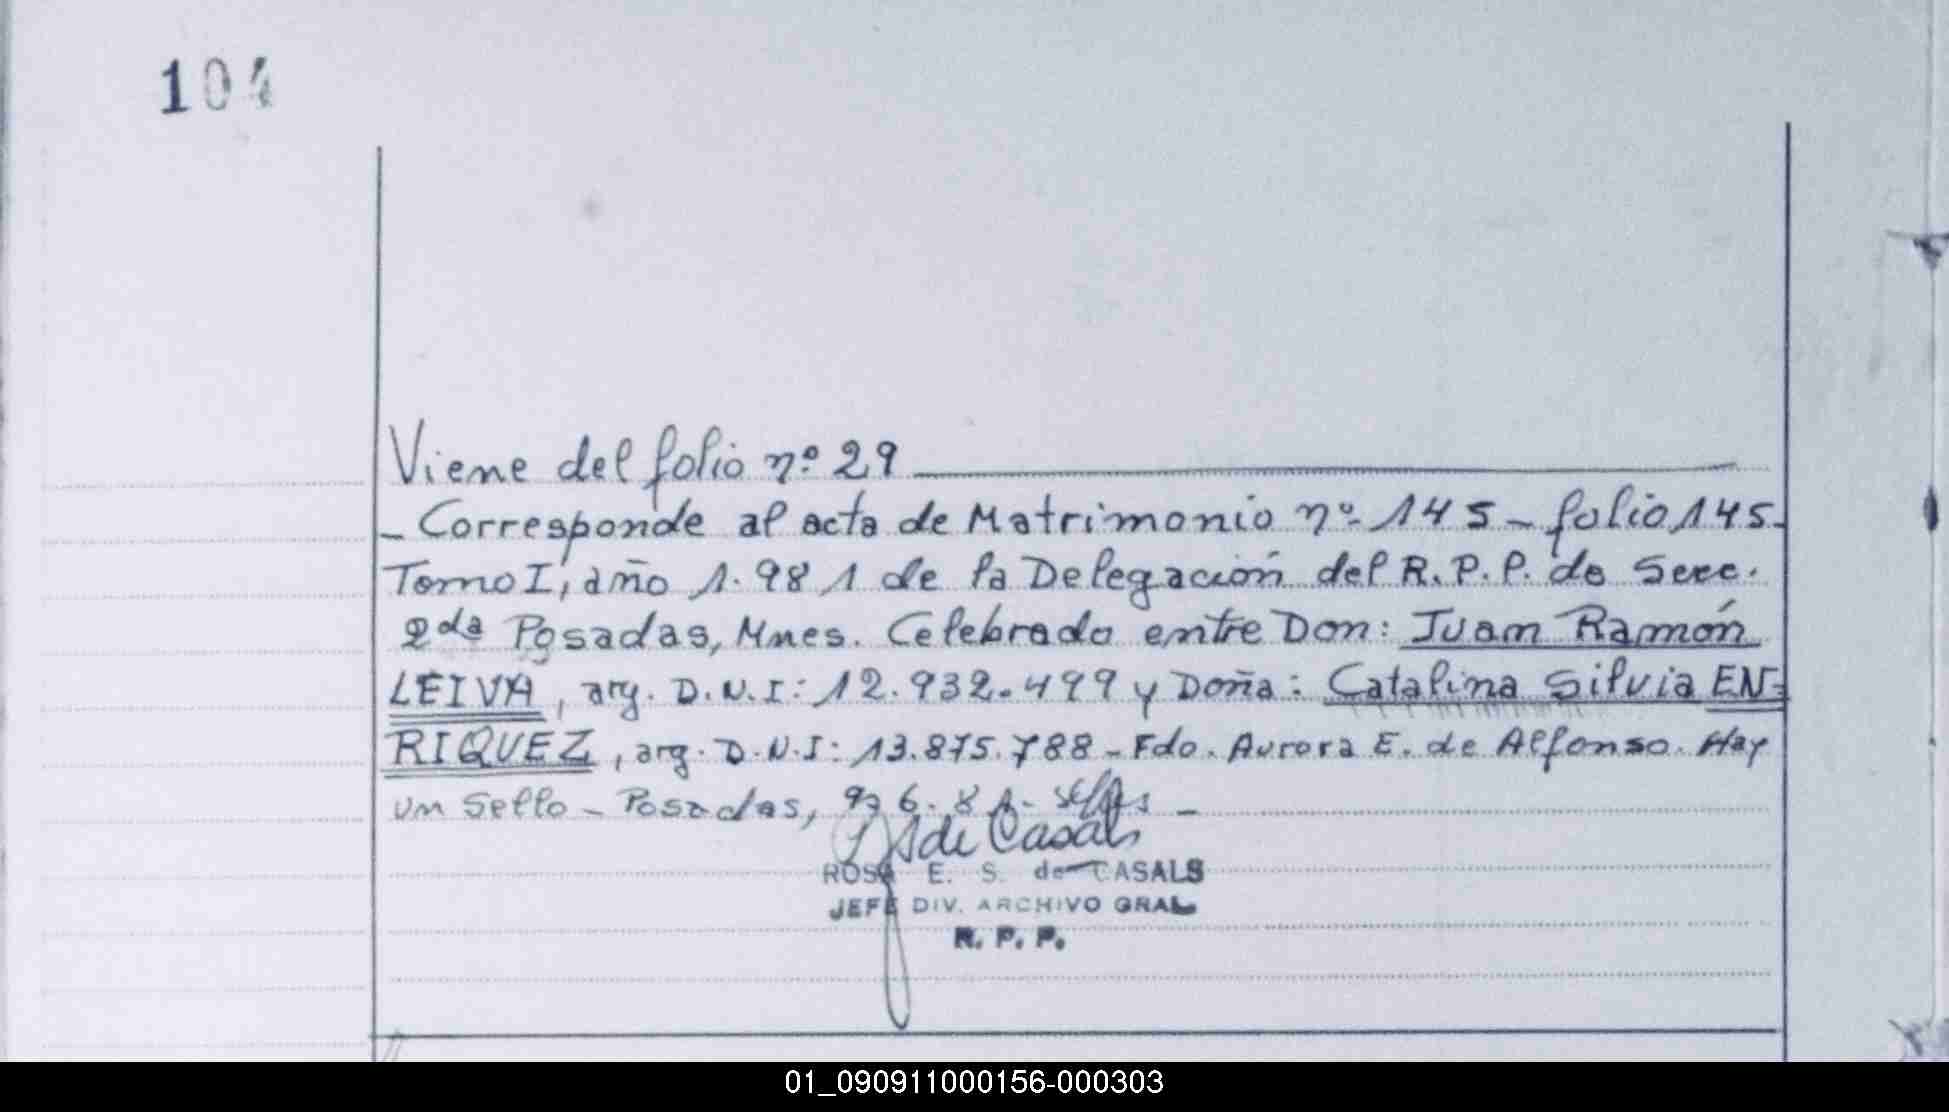 104
Viene del folio nº 29
- Corresponde al acta de Matrimonio nº 145 - folio 145-
Tomo I, año 1.981 de la Delegación del R.P.P. de Secc.
2da Posadas, Mnes. Celebrado entre Don: Juan Ramón
LEIVA, arg. D.N.I: 12.932.499 y Doña: Catalina Silvia EN-
RIQUEZ, arg. D.N.I: 13.875.788 - Fdo. Aurora E. de Alfonso. Hay
un Sello - Posadas,
de Casals
ROSA E. S. de CASALS
JEFE DIV. ARCHIVO GRAL
R. P. P.
01_090911000156-000303